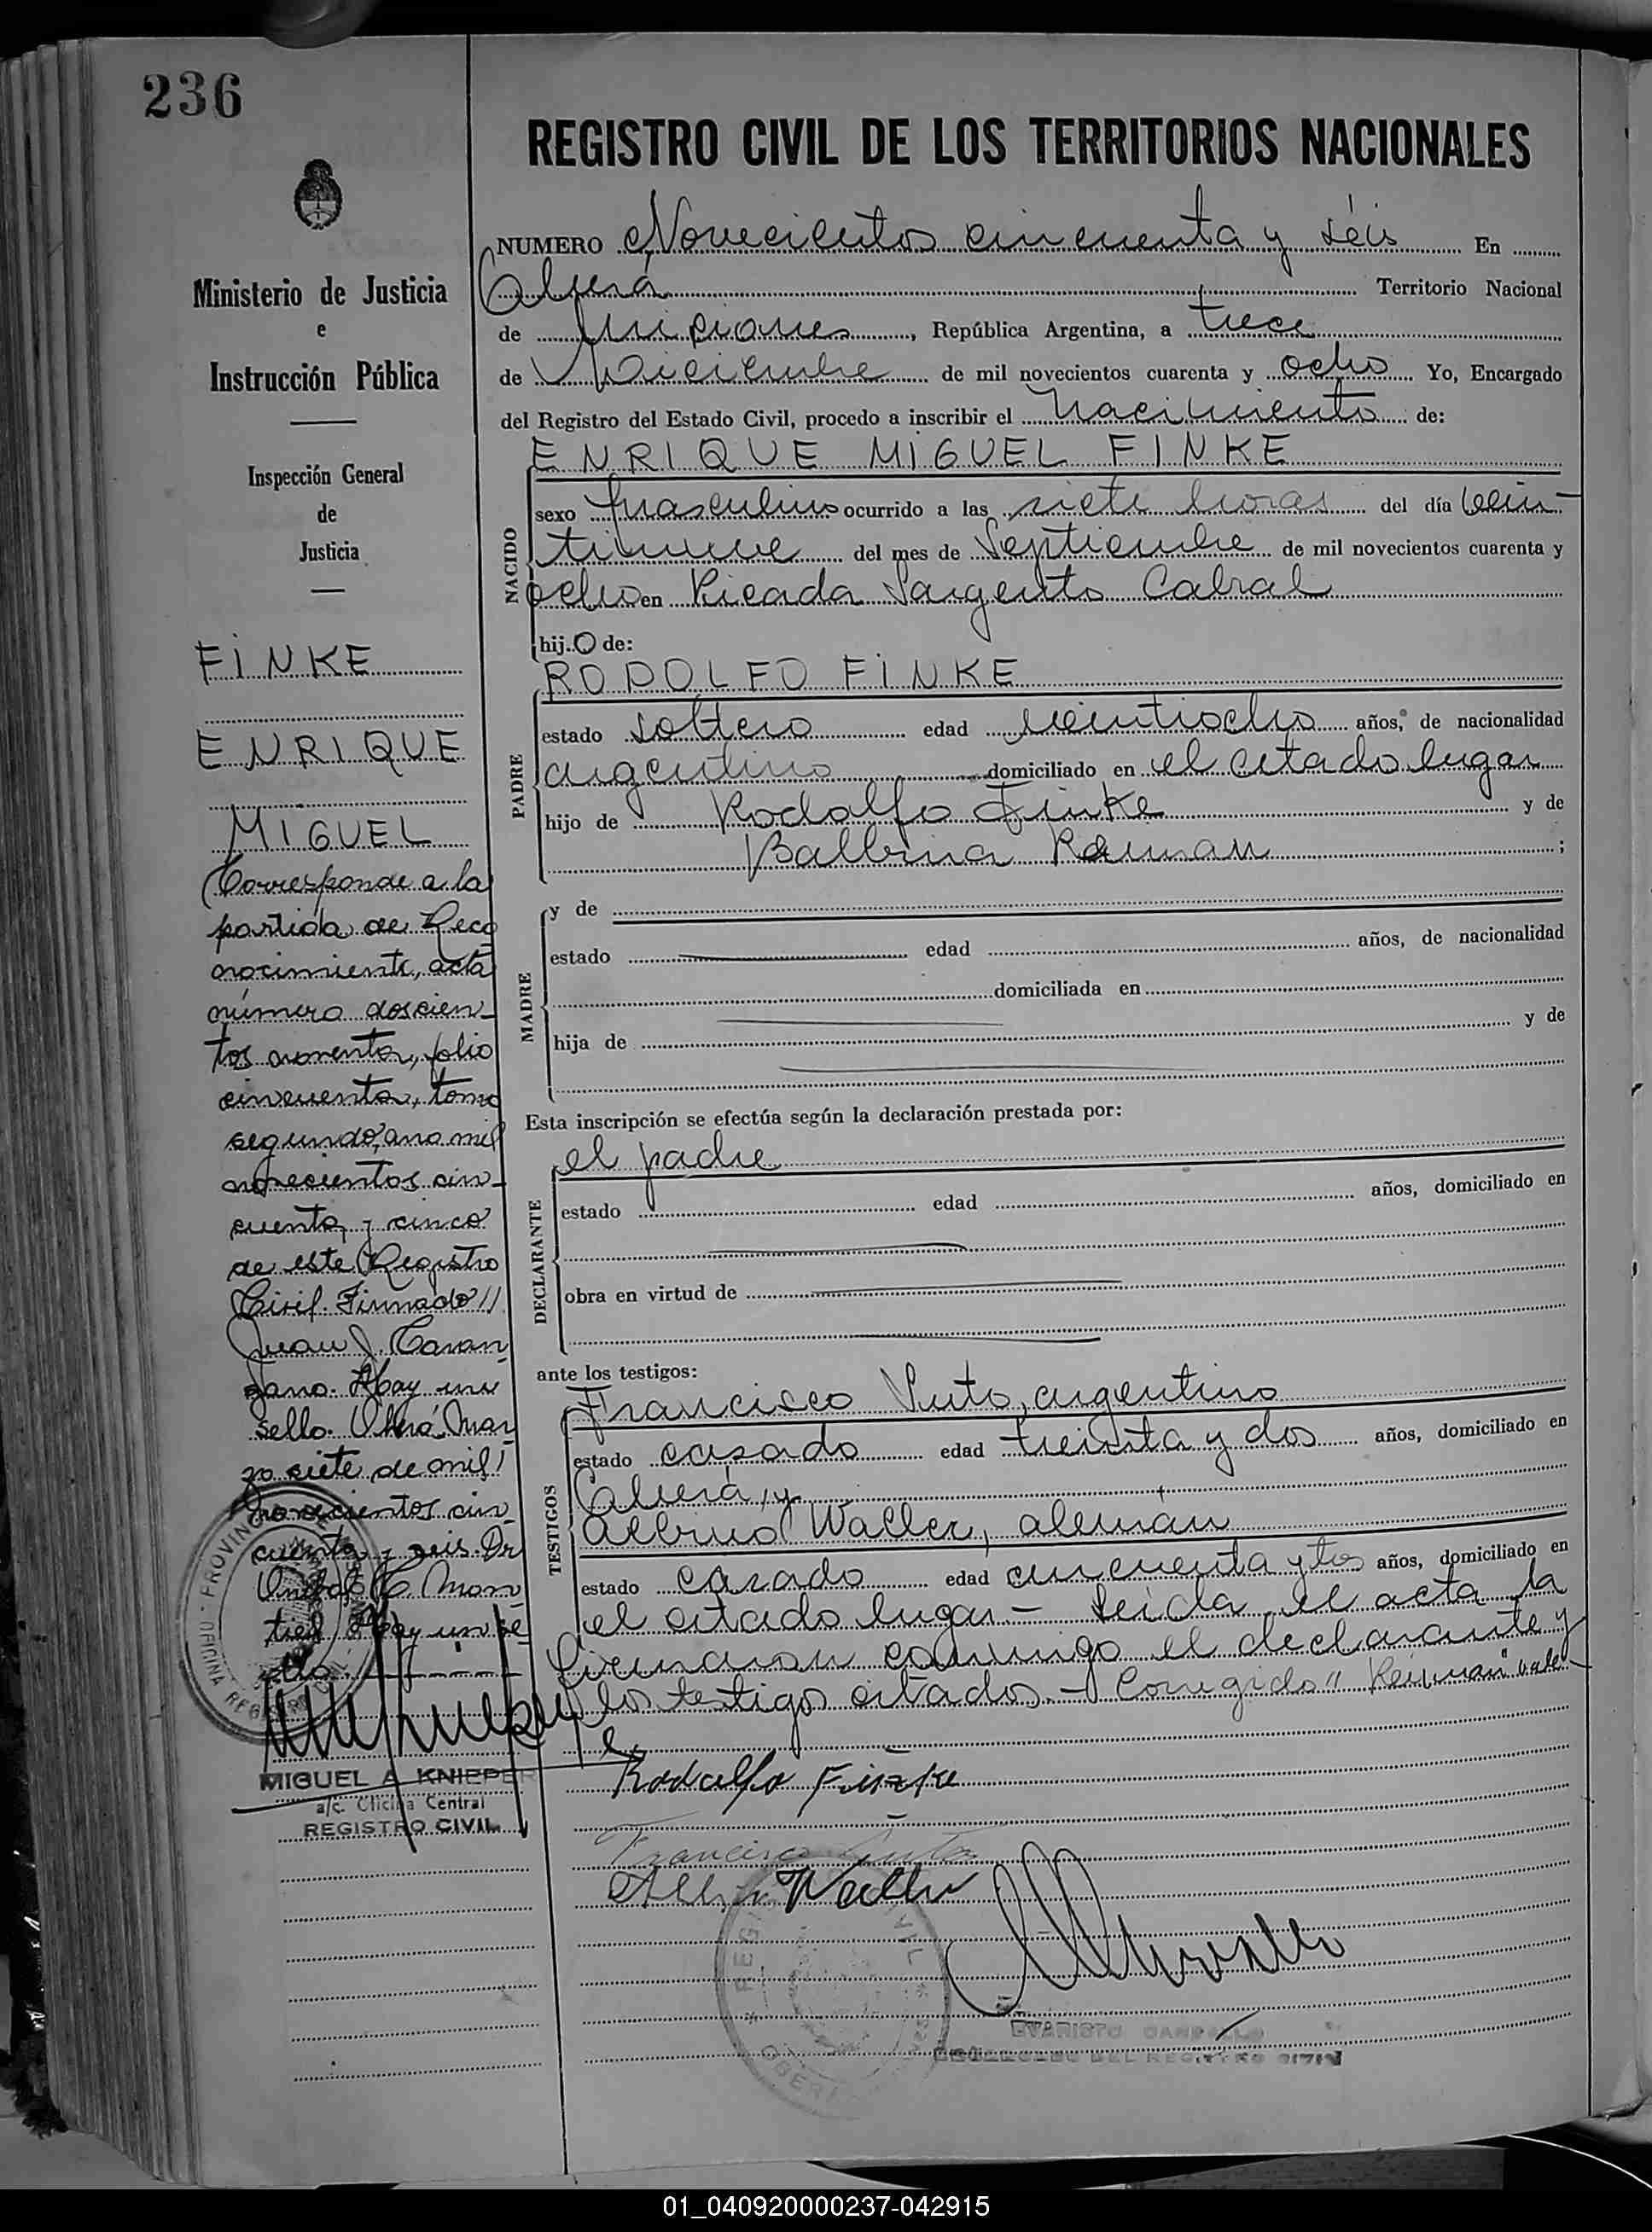 236
Ministerio de Justicia
e
Instrucción Pública
Inspección General
de
Justicia
FINKE
ENRIQUE
MIGUEL
Corresponde a la
partida de Reco
nocimiento, acta
número doscien-
tos noventa, folio
cincuenta, tomo
segundo, ano mil
novecientos cin-
cuenta y cinco
de este Registro
Civil. Firmado//
Juan J.
Hay un
sello. Oberá Mar
zo siete de mil
novecientos cin-
cuenta y seis. Dr
Hay un se
llo.
MIGUEL A. KNIEPER
a/c. Oficina Central
REGISTRO CIVIL
REGISTRO CIVIL DE LOS TERRITORIOS NACIONALES
NUMERO Novecientos cincuenta y séis En
Oberá Territorio Nacional
de Misiones, República Argentina, a trece
de Diciembre de mil novecientos cuarenta y ocho Yo, Encargado
del Registro del Estado Civil, procedo a inscribir el nacimiento de:
NACIDO
ENRIQUE MIGUEL FINKE
sexo masculino ocurrido a las siete horas del día vein-
tinueve del mes de Septiembre de mil novecientos cuarenta y
ocho en Picada Sargento Cabral
hijo de:
PADRE
RODOLFO FINKE
estado soltero edad veintiocho años, de nacionalidad
argentino domiciliado en el citado lugar
hijo de Rodolfo Finke y de
Balbina Reiman;
MADRE
y de
estado edad años, de nacionalidad
domiciliada en
hija de y de
Esta inscripción se efectúa según la declaración prestada por:
DECLARANTE
el padre
estado edad años, domiciliado en
obra en virtud de
ante los testigos:
TESTIGOS
Francisco argentino
estado casado edad treinta y dos años, domiciliado en
Oberá, y
Albino Waller, alemán
estado casado edad cincuenta y años, domiciliado en
el citado lugar.- Leida el acta la
firmaron conmigo el declarante y
los testigos citados.- Corregido "Reiman" vale-
Rodolfo Finke
Francisco
Albin Waller
REGISTRO CIVIL
EVARISTO
DEL REGISTRO CIVIL
OFICINA REGISTRO
PROVINC
01_040920000237-042915